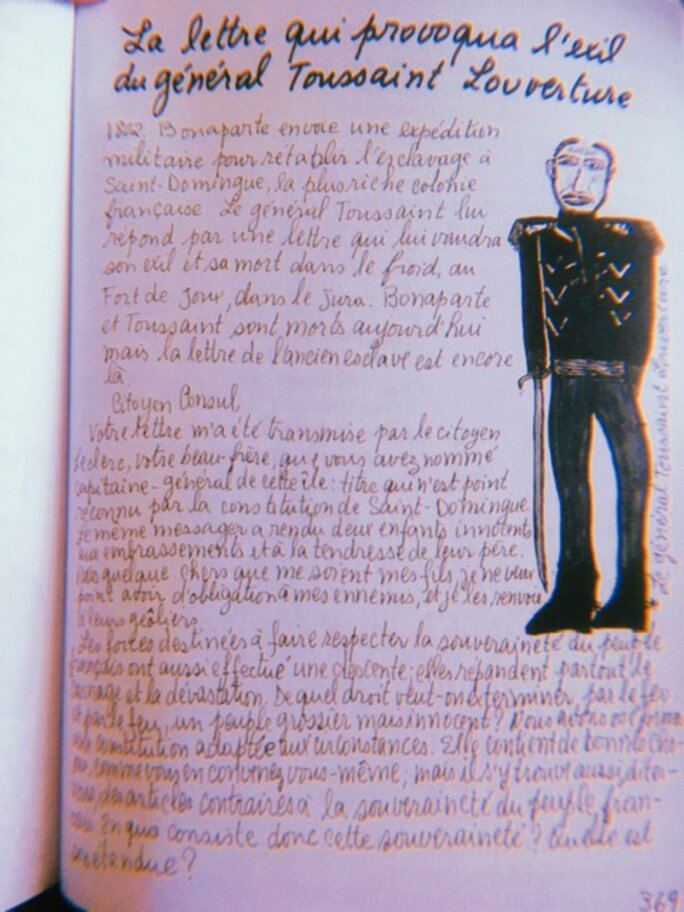 La lettre qui provoqua l'exil
du général Toussaint Louverture
1802. Bonaparte envoie une expédition
militaire pour rétablir l'esclavage à
Saint-Domingue, la plus riche colonie
française. Le général Toussaint lui
répond par une lettre qui lui vaudra
son exil et sa mort dans le froid, au
Fort de Joux, dans le Jura. Bonaparte
et Toussaint sont morts aujourd'hui
mais la lettre de l'ancien esclave est encore
là.
Citoyen Consul,
Votre lettre m'a été transmise par le citoyen
Leclerc, votre beau-frère, que vous avez nommé
capitaine-général de cette île: titre qui n'est point
reconnu par la constitution de Saint-Domingue.
Le même messager a rendu deux enfants innocents
aux embrassements et à la tendresse de leur père.
quelque chers que me soient mes fils, je ne veux
point avoir d'obligation à mes ennemis, et je les renvoie
à leurs geôliers.
Les forces destinées à faire respecter la souveraineté du peuple
français ont aussi effectué une descente; elles répandent partout le
carnage et la dévastation. De quel droit veut-on exterminer, par le fer
et par le feu, un peuple grossier mais innocent? Nous avons osé former
une constitution adaptée aux circonstances. Elle contient de bonnes cho-
ses, comme vous en convenez vous-même; mais il s'y trouve aussi, dites-
vous, des articles contraires à la souveraineté du peuple fran-
çais. En quoi consiste donc cette souveraineté? Quelle est
son étendue?
Le général Toussaint Louverture
369